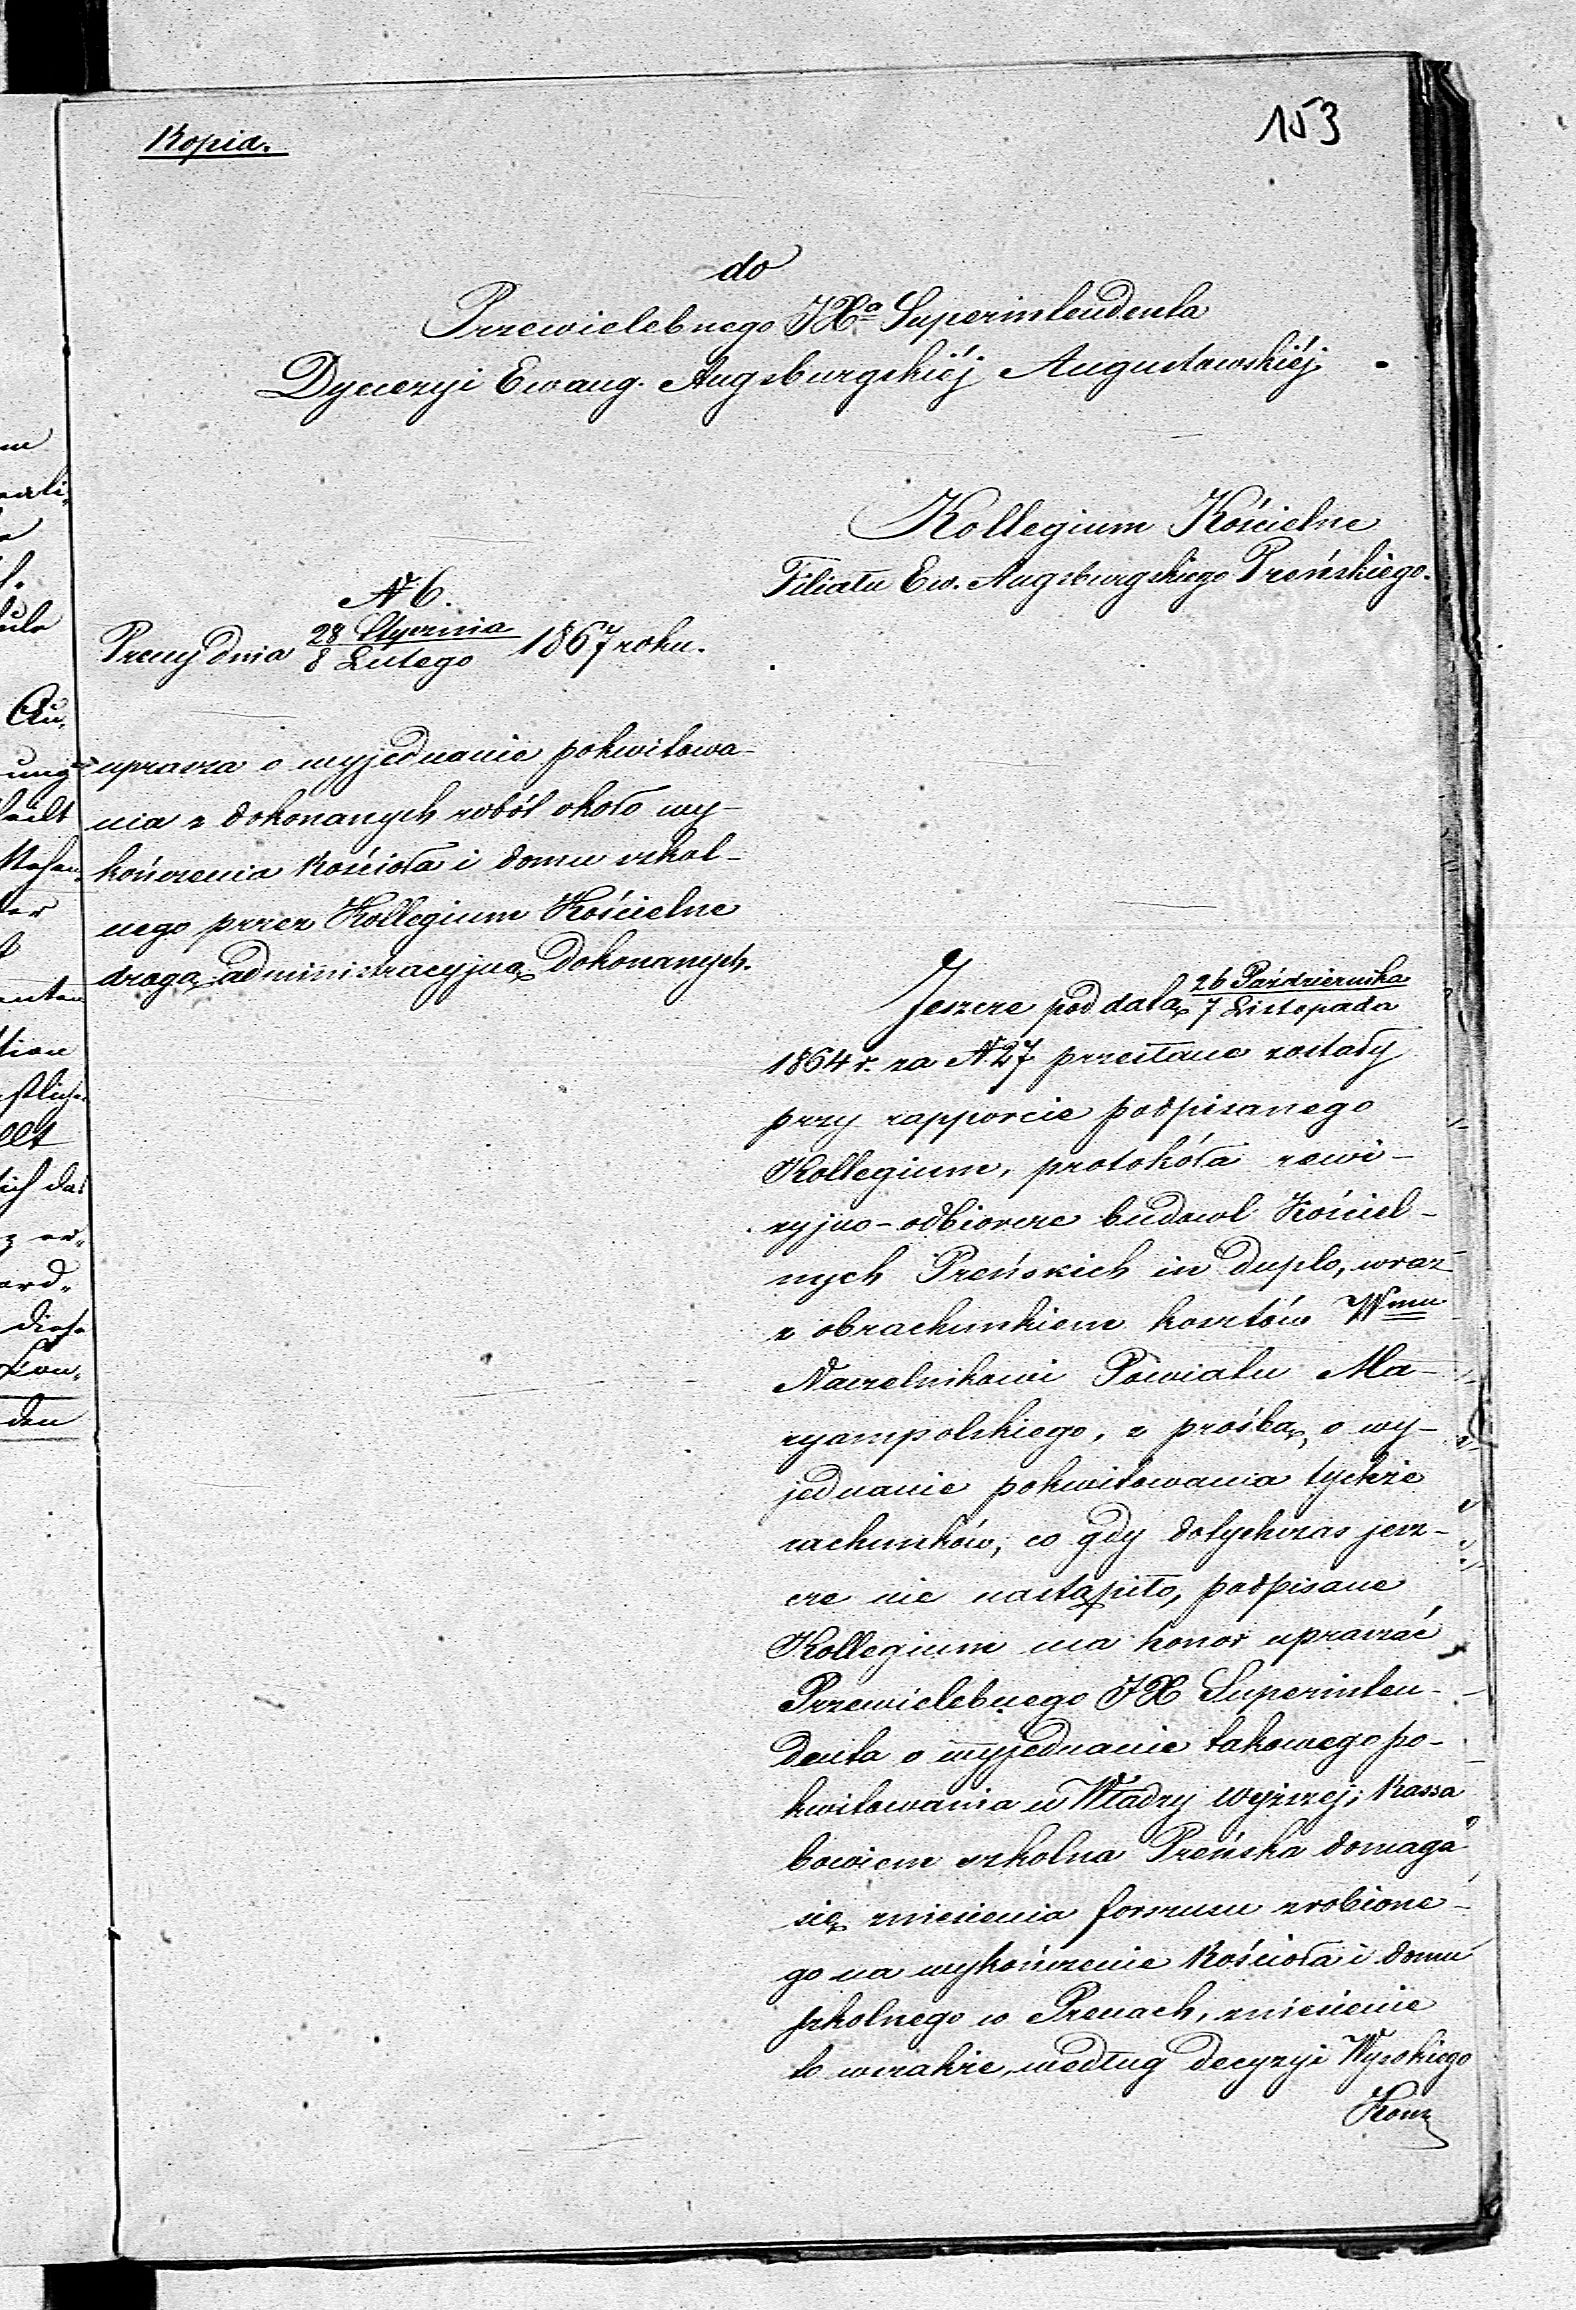 Kopia.
153
do
Przewielebnego JXa Superintendenta
Dyecezyi Ewang. Augsburgskiéj Augustowskiéj
Kollegium Kościelne
Filiału Ew. Augsburgskiego Preńskiego.
N 6.
Preny dnia 28 Stycznia / 8 Lutego 1867 roku.
uprasza o wyjednanie pokwitowa-
nia z dokonanych robót około wy-
kończenia Kościoła i domu szkol-
nego przez Kollegium Kościelne
drogą administracyjną dokonanych.
Jeszcze pod datą 26 Października / 7 Listopada
1864 r. za N. 27 przesłane zostały
przy rapporcie podpisanego
Kollegium, protokóła rewi-
zyjno-odbiorcze budowl Kościel-
nych Preńskich in duplo, wraz
z obrachunkiem kosztów Wmu
Naczelnikowi Powiatu Ma-
ryampolskiego, z prośbą, o wy-
jednanie pokwitowania tychże
rachunków, co gdy dotychczas jesz-
cze nie nastąpiło, podpisane
Kollegium ma honor upraszać
Przewielebnego JX Superinten-
denta o wyjednanie takowego po-
kwitowania u Władzy wyższej; Kassa
bowiem szkolna Preńska domaga
się zniesienia forszusu zrobione-
go na wykończenie Kościoła i domu
szkolnego w Prenach, zniesienie
to wszakże, według decyzyi Wysokiego
Konz